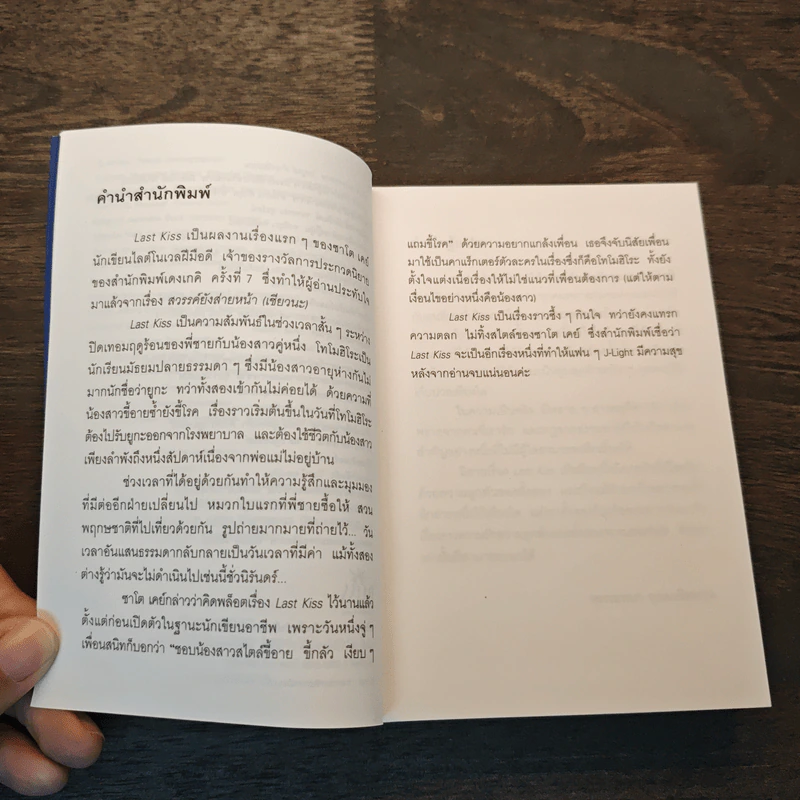 คำนำสำนักพิมพ์
Last Kiss เป็นผลงานเรื่องแรก ๆ ของซาโต เคย์
นักเขียนไลต์โนเวลฝีมือดี เจ้าของรางวัลการประกวดนิยาย
ของสำนักพิมพ์เดงเกคิ ครั้งที่ 7 ซึ่งทำให้ผู้อ่านประทับใจ
มาแล้วจากเรื่อง สวรรค์ยังส่ายหน้า (เซียวนะ)
Last Kiss เป็นความสัมพันธ์ในช่วงเวลาสั้น ๆ ระหว่าง
ปิดเทอมฤดูร้อนของพี่ชายกับน้องสาวคู่หนึ่ง โทโมฮิโระเป็น
นักเรียนมัธยมปลายธรรมดา ๆ ซึ่งมีน้องสาวอายุห่างกันไม่
มากนักชื่อว่ายูกะ ทว่าทั้งสองเข้ากันไม่ค่อยได้ ด้วยความที่
น้องสาวขี้อายซ้ำยังขี้โรค เรื่องราวเริ่มต้นขึ้นในวันที่โทโมฮิโระ
ต้องไปรับยูกะออกจากโรงพยาบาล และต้องใช้ชีวิตกับน้องสาว
เพียงลำพังถึงหนึ่งสัปดาห์เนื่องจากพ่อแม่ไม่อยู่บ้าน
ช่วงเวลาที่ได้อยู่ด้วยกันทำให้ความรู้สึกและมุมมอง
ที่มีต่ออีกฝ่ายเปลี่ยนไป หมวกใบแรกที่พี่ชายซื้อให้ สวน
พฤกษชาติที่ไปเที่ยวด้วยกัน รูปถ่ายมากมายที่ถ่ายไว้... วัน
เวลาอันแสนธรรมดากลับกลายเป็นวันเวลาที่มีค่า แม้ทั้งสอง
ต่างรู้ว่ามันจะไม่ดำเนินไปเช่นนี้ชั่วนิรันดร์...
ซาโต เคย์กล่าวว่าคิดพล็อตเรื่อง Last Kiss ไว้นานแล้ว
ตั้งแต่ก่อนเปิดตัวในฐานะนักเขียนอาชีพ เพราะวันหนึ่งจู่ ๆ
เพื่อนสนิทก็บอกว่า "ชอบน้องสาวสไตล์ขี้อาย ขี้กลัว เงียบ ๆ
แถมขี้โรค" ด้วยความอยากแกล้งเพื่อน เธอจึงจับนิสัยเพื่อน
มาใช้เป็นคาแร็กเตอร์ตัวละครในเรื่องซึ่งก็คือโทโมฮิโระ ทั้งยัง
ตั้งใจแต่งเนื้อเรื่องให้ไม่ใช่แนวที่เพื่อนต้องการ (แต่ให้ตาม
เงื่อนไขอย่างหนึ่งคือน้องสาว)
Last Kiss เป็นเรื่องราวซึ้ง ๆ กินใจ ทว่ายังคงแทรก
ความตลก ไม่ทิ้งสไตล์ของซาโต เคย์ ซึ่งสำนักพิมพ์เชื่อว่า
Last Kiss จะเป็นอีกเรื่องหนึ่งที่ทำให้แฟน ๆ J-Light มีความสุข
หลังจากอ่านจบแน่นอนค่ะ